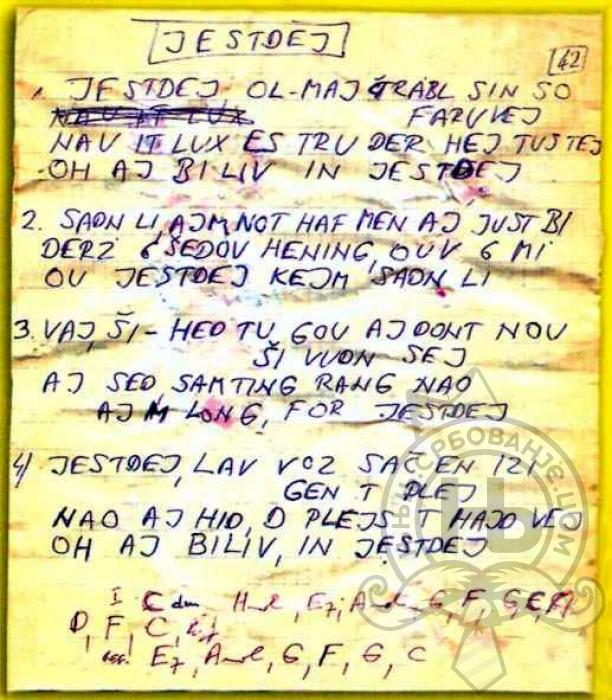 JESTDEJ
42
1. JESTDEJ OL-MAJ TRABL SIN SO
NAU IT LUX FARUVEJ
NAU IT LUX ES TRU DER HEJ TUSTEJ
OH AJ BILIV IN JESTDEJ
2. SADN LI, AJM NOT HAF MEN AJ JUST BI
DERZ E ŠEDOV HENING, OUV G MI
OU JESTDEJ KEJM SADN LI
3. VAJ, ŠI-HED TU, GOU AJ DONT NOU
ŠI VUON SEJ
AJ SED, SAMTING RANG NAO
AJM LONG, FOR JESTDEJ
4) JESTDEJ, LAV VOZ SAČ EN IZI
GEN T PLEJ
NAO AJ HID, D PLEJS T HAJD VEJ
OH AJ BILIV, IN JESTDEJ
I C H E7, A G, F, G, C
D, F, C,
E7, G, F, G, C
СРБОВАЊЕ.ЦОМ